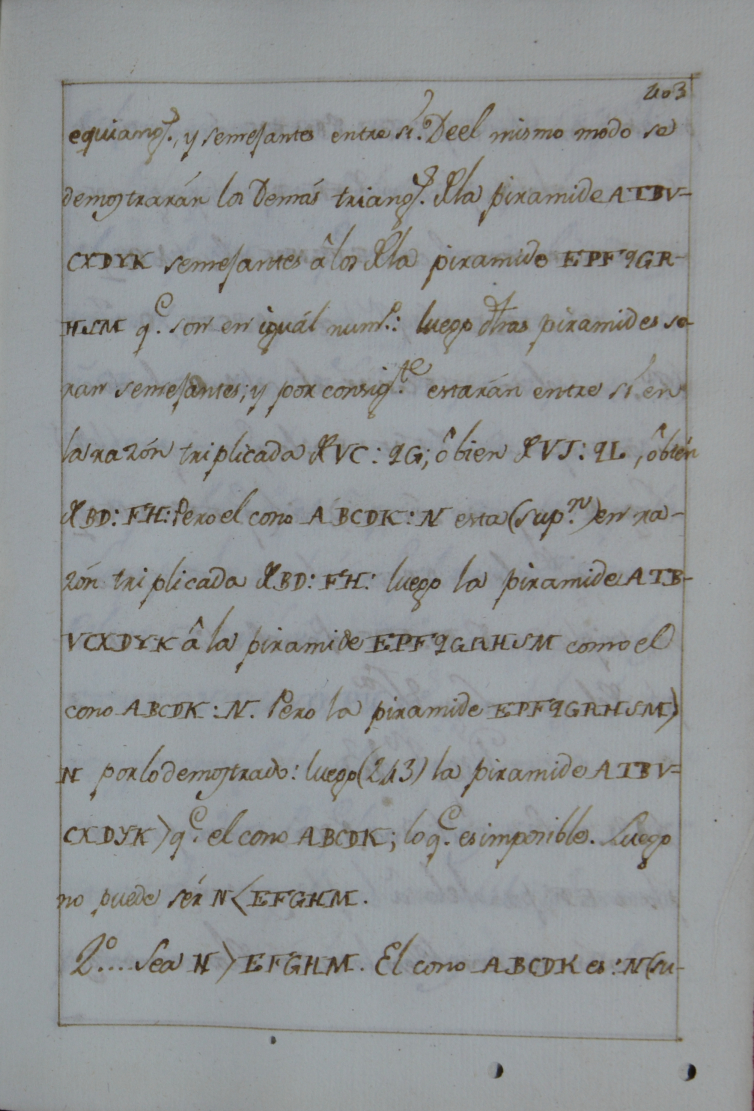 403
equiang.s, y semejantes entre si. De el mismo modo se
demostrarán los demás triang.s de la piramide ATBV=
CXDYK semejantes â los de la piramide EPFQGR-
HSM q.e son en iguál num.o: luego dhas piramides se-
ran semejantes; y por consig.te estarán entre si en
la razón triplicada de VC : QG; ô bien de VI : QL, ô bien
de BD : FH: Pero el cono ABCDK : N esta (sup.n) en ra-
zón triplicada de BD : FH: luego la piramide ATB-
VCXDYK â la piramide EPFQGRHSM como el
cono ABCDK : N. Pero la piramide EPFQGRHSM >
N por lo demostrado: luego (243) la piramide ATBV=
CXDYK > q.e el cono ABCDK; lo q.e es imposible. Luego
no puede sér N < EFGHM.
2.o .... Sea N > EFGHM. El cono ABCDK es : N (su-